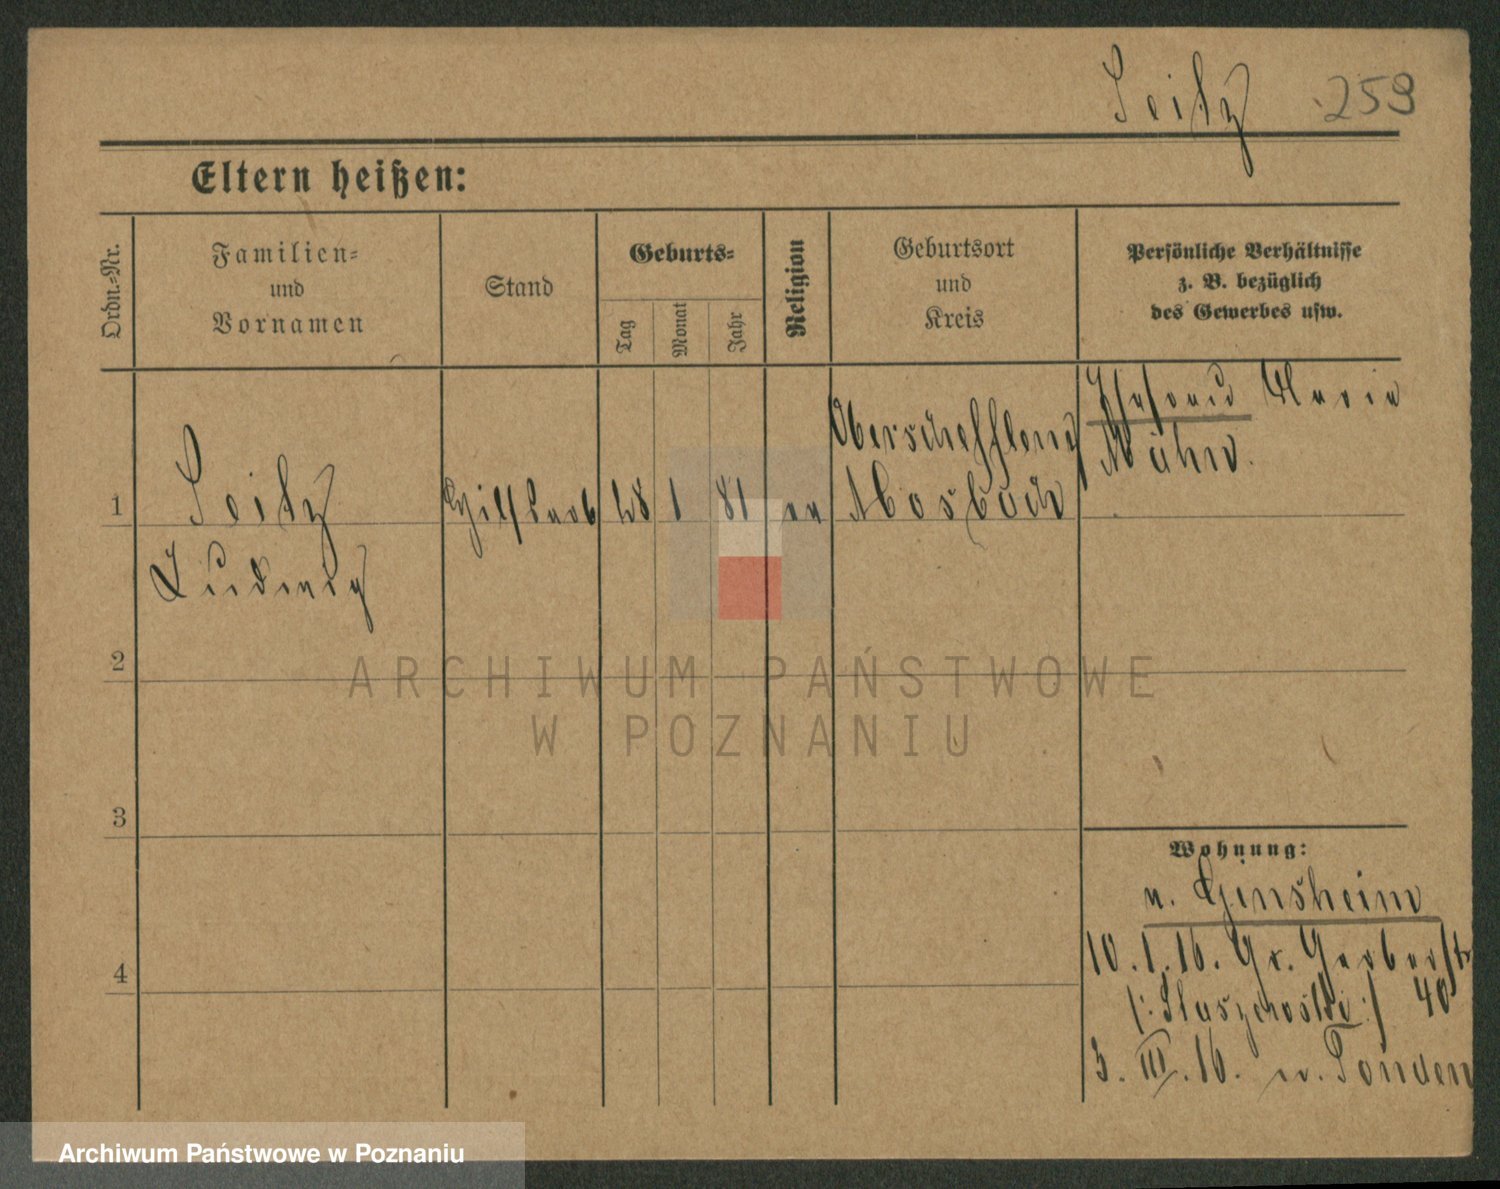 Seitz 259
Eltern heißen:
Ordn.=Nr.
Familien=
und
Vornamen
Stand
Geburts=
Tag
Monat
Jahr
Religion
Geburtsort
und
Kreis
Persönliche Verhältnisse
z. B. bezüglich
des Gewerbes usw.
1
Seitz
Ludwig
28 1 81
Mosbach
Ehefrau Marie
2
3
4
Wohnung:
n. Ginsheim
10. 1. 16. Gr. Gerberstr
40
3. III. 16.
ARCHIWUM PAŃSTWOWE
W POZNANIU
Archiwum Państwowe w Poznaniu